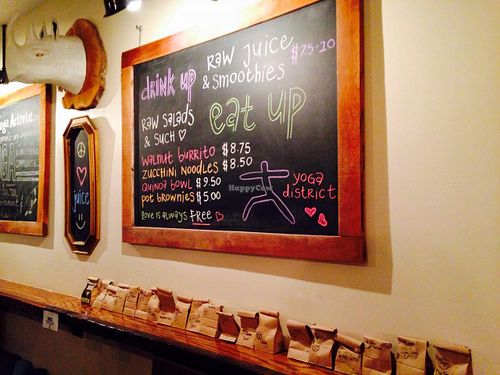 Raw Juice
& Smoothies
$7.5-10
drink up
Raw Salads
& Such
eat up
Walnut Burrito $8.75
Zucchini Noodles $8.50
Quinoa Bowl $9.50
Pot Brownies $5.00
Love is always FREE
yoga
district
HappyCow
juice